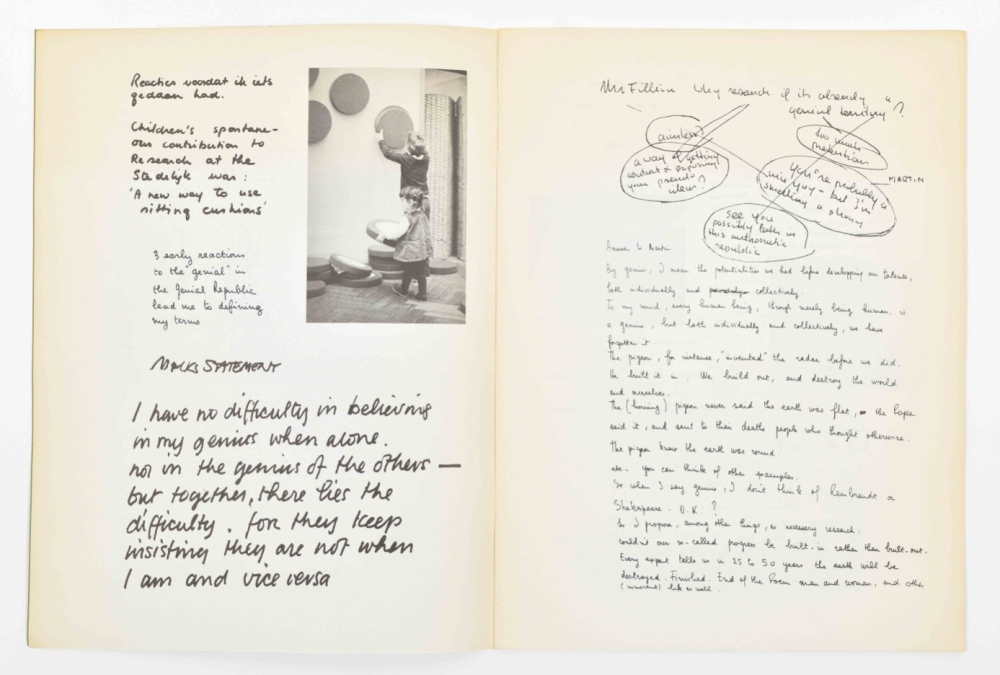 Reacties voordat ik iets
gedaan had.
Children's spontane-
ous contribution to
Research at the
Stedelijk was:
'A new way to use
sitting cushions'
3 early reactions
to the "genial" in
the Genial Republic
lead me to defining
my terms
STATEMENT
I have no difficulty in believing
in my genius when alone.
nor in the genius of the others —
but together, there lies the
difficulty. for they keep
insisting they are not when
I am and vice versa
Mr Filliou Why research if its already a
genial territory?
aimless?
too much
pretention
a way of getting
&
your pseudo
ideas?
you're probably a
nice guy - but I'm
smelling a phoney
MARTIN
see you
possibly later in
this
republic
Answer to Martin
By genius, I mean the potentialities we had before developping our talents,
both individually and collectively.
To my mind, every human being, through merely being human, is
a genius, but both individually and collectively, we have
forgotten it.
The pigeon, for instance, "invented" the radar before we did.
He built it in. We build out, and destroy the world
and ourselves.
The (homing) pigeon never said the earth was flat, the Pope
said it, and sent to their deaths people who thought otherwise.
The pigeon knew the earth was round.
etc. you can think of other examples.
So when I say genius, I don't think of Rembrandt or
Shakespeare. O.K.?
So I propose, among other things, as necessary research:
couldn't our so-called progress be built-in rather than built-out.
Every expert tells us in 25 to 50 years the earth will be
destroyed. Finished. End of the Poem man and woman, and other
(innocent) life as well.